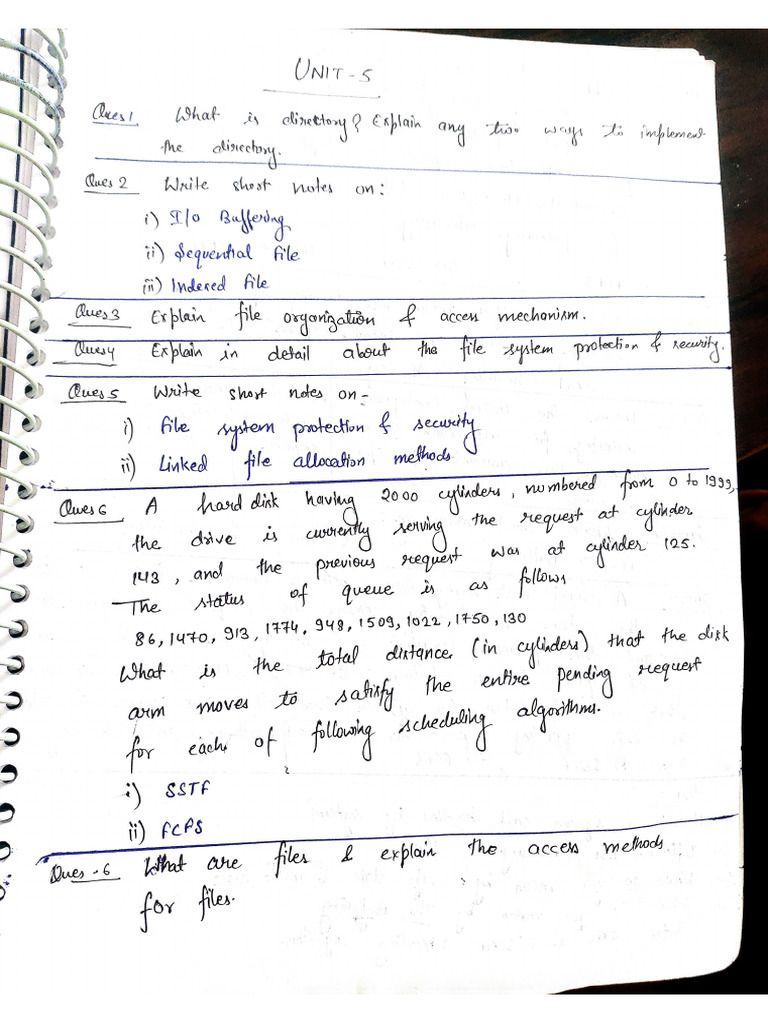 UNIT-5
Ques1 What is directory? Explain any two ways to implement
the directory.
Ques 2 Write short notes on:
i) I/o Buffering
ii) Sequential file
iii) Indexed file
Ques3 Explain file organization & access mechanism.
Ques4 Explain in detail about the file system protection & security.
Ques 5 Write short notes on-
i) file system protection & security
ii) Linked file allocation methods.
Ques 6 A hard disk having 2000 cylinders, numbered from 0 to 1999,
the drive is currently serving the request at cylinder
143, and the previous request was at cylinder 125.
The status of queue is as follows
86, 1470, 913, 1774, 948, 1509, 1022, 1750, 130
What is the total distance (in cylinders) that the disk
arm moves to satisfy the entire pending request
for each of following scheduling algorithms.
i) SSTF
ii) FCFS
Ques-6 What are files & explain the access methods
for files.